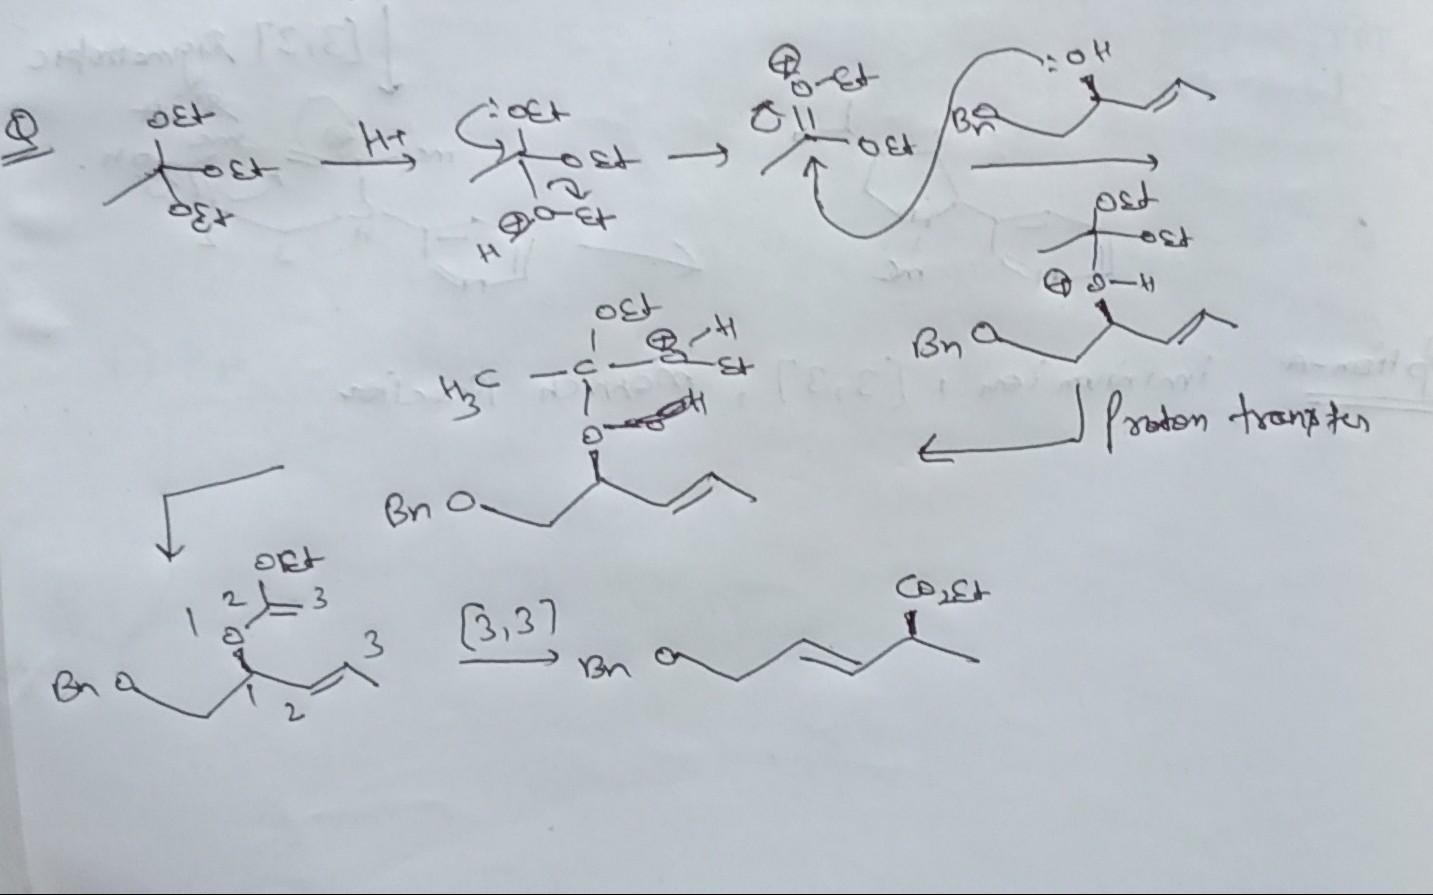 ①
OEt
OEt
OEt
H+
:OEt
OEt
⊕O-Et
H
⊕
O-Et
OEt
:OH
BnO
OEt
OEt
⊕ O-H
BnO
Proton transfer
OEt
H3C - C - O - Et
⊕ H
O
BnO
OEt
1 2 3
O
BnO 1 2 3
[3,3]
CO2Et
BnO